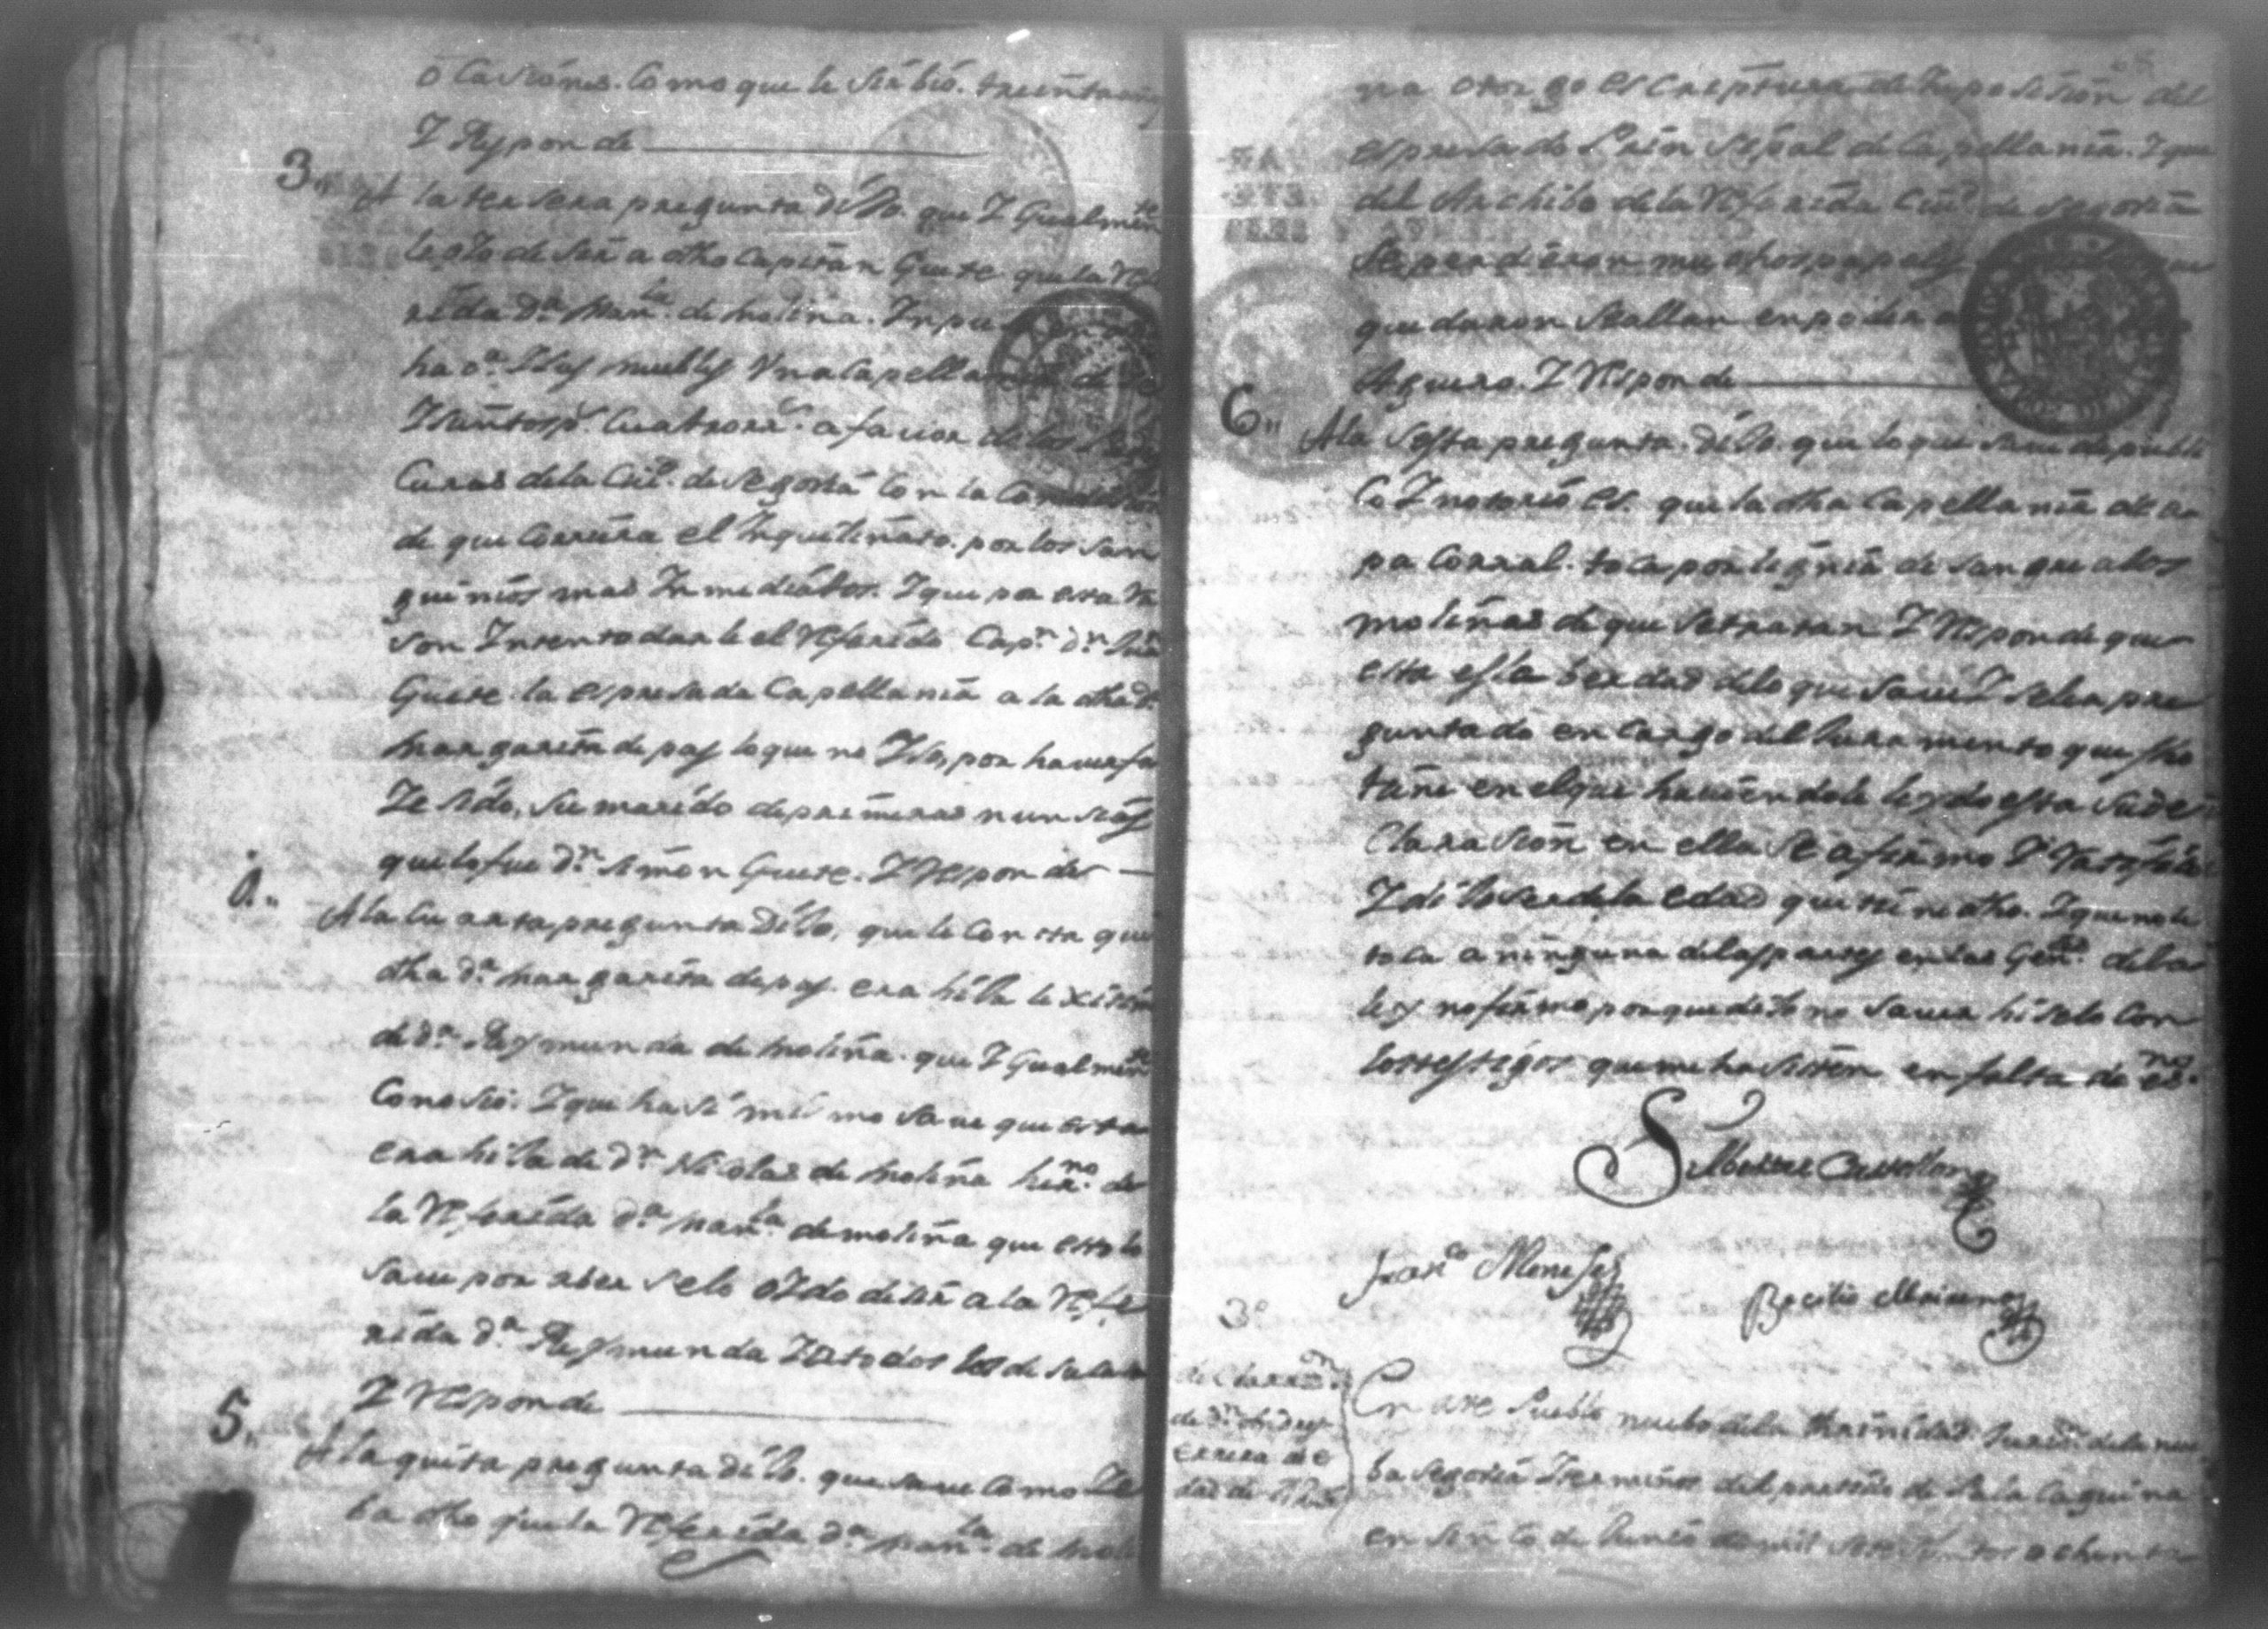 ocasiones. como que le sirbió. treinta
Y Responde
3,, A la tersera pregunta díJo. que Y Gualmte
le oYo desir a dho Capitan Guete que la Refe
rida Da. Manla. de molina. Ynpu
ha oa. Y sus muebles Vna Capella
Y suntosps. cuatror. a fauor de los
Curas de la Ciud. de segoviá con la Condision
de que Corriera el Ynquilinato. por los san
guinios mas Ynmediatos. Y que pa esta ra
son Yntento darle el Referido Capn. Dn. Jua
Guete la espresada Capellania a la dha Da.
Margarita de pas lo que no Yso, por hauer fa
lle sido, su marido de primeras nunsias
que lo fue Dn. Simon Guete. Y Responde
4.. A la cuarta pregunta DíJo, que le consta que
dha Da. Margarita de pas. era hiJa lexitim
de Da. Reymunda de Molina. que Y Gualmte
Conosio. Y que hasi mismo saue que esta
era hiJa de Dn. Nicolas de Molina herno. de
la Referida Da. Manla. de molina que esto lo
saue por aberselo oYdo desir a la Refe
rida Da. Reymunda Y a todos los de su casa
Y Responde
5.. A la quinta pregunta díJo. que saue como Lle
ba dho que la Referida Da. Manla. de Moli
na otorgo escriptura de Ynposision del
espresado Prinsipal de Capellania. Y que
del Archibo de la Referida Ciud. de segoviá
se perdieron muchos papeles
que daron se allan en poder
Aguero. Y Responde
6.. A la sesta pregunta. díJo. que lo que saue de publi
co Y notorio es. que la dha Capellania de
pa Corral. toca por ligniá de sangre a los
molinas de que se tratan Y Responde que
esta es la berdad de lo que saue Y se le a pre
guntado en cargo del Juramento que fho
tiene en el que hauiendole leydo esta su de
clarasion en ella se afirmo Y Ratifico
Y díJo ser de la edad que tiene dho. Y que no le
toca a ninguna de las partes en las Genes. de la
ley no firmo por que díJo no sauer hiselo con
los testigos que me hasisten en falta de esno.
Silbestre Castellon
Franco Meneses
Bacilio Mairena
3o
declarasn.
de Dn. Andres
errera de e
dad de
En este Pueblo nuebo de la trinidad Jurisn. de la nue
ba segoviá Y terminos del partido de Palacaguina
en sinco de Junio de mil setesientos ochenta